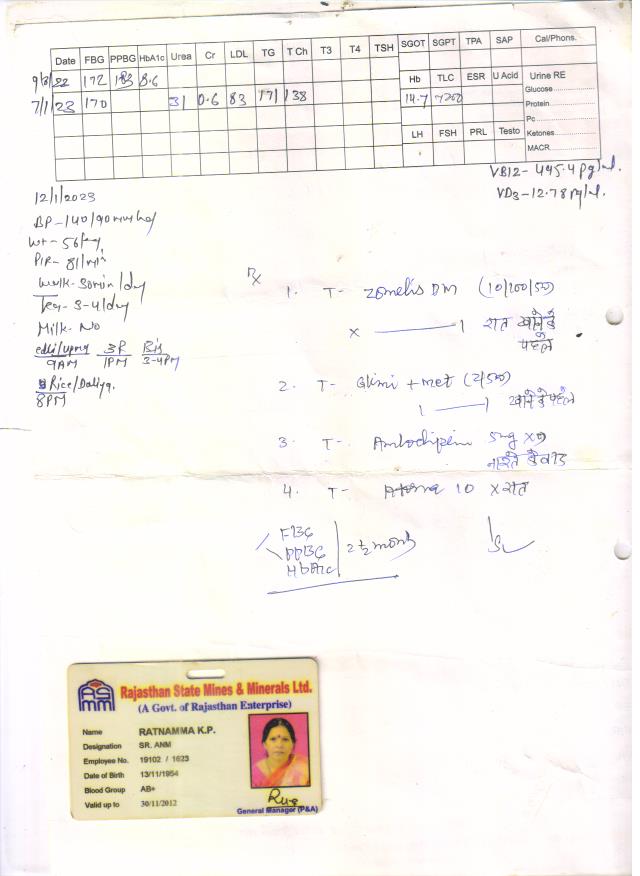 Date FBG PPBG HbA1c Urea Cr LDL TG T Ch T3 T4 TSH SGOT SGPT TPA SAP Cal/Phons.
9/3/22 172 183 8.6 Hb TLC ESR U Acid Urine RE
Glucose
7/1/23 170 31 0.6 83 171 138 14.7 7200
Protein
Pc
LH FSH PRL Testo Ketones
MACR
VB12- 495.4 pg/ml.
VD3-12.78 ng/ml.
12/1/2023
BP-140/90mmhg
Wt- 56kg
P/R- 81/min
Walk-30min/day
Tea-3-4/day
Milk-No
edli/upma 3R Bis
9AM 1PM 3-4PM
Rice/Daliya.
8PM
Rx
1. T- Zomelis DM (10/100/500)
x 1 रात खाने के
पहले
2. T- Glimi + met (2/500)
1 1 खाने के पहले
3. T- Amlodipin 5mg x
नाश्ते के बाद
4. T- 10 x रात
FBG
PPBG 2 1/2 month
HbA1c
ASMM
Rajasthan State Mines & Minerals Ltd.
(A Govt. of Rajasthan Enterprise)
Name RATNAMMA K.P.
Designation SR. ANM
Employee No. 19102 / 1623
Date of Birth 13/11/1954
Blood Group AB+
Valid up to 30/11/2012
General Manager (P&A)